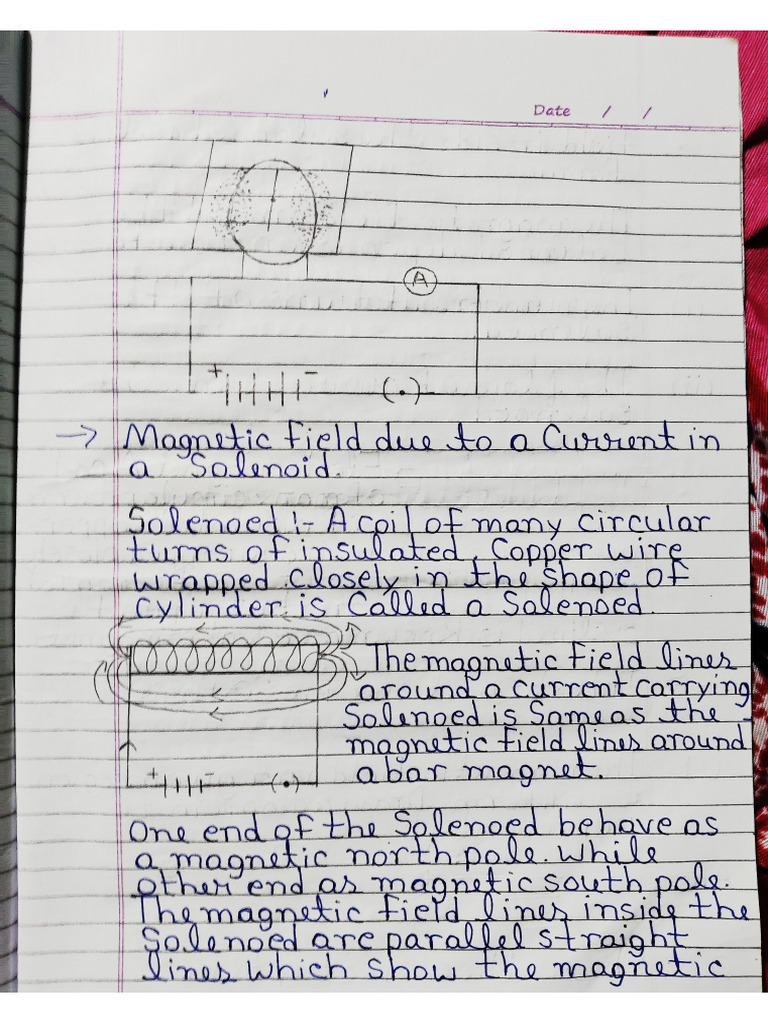 Date / /
A
+ -
(.)
→ Magnetic field due to a Current in
a Solenoid.
Solenoed :- A coil of many circular
turns of insulated, Copper wire
wrapped closely in the shape of
cylinder is Called a Solenoed.
The magnetic field lines
around a current carrying
Solenoed is Same as the
magnetic field lines around
a bar magnet.
+ -
(.)
One end of the Solenoed behave as
a magnetic north pole. While
other end as magnetic south pole.
The magnetic field lines inside the
Solenoed are parallel straight
lines which show the magnetic